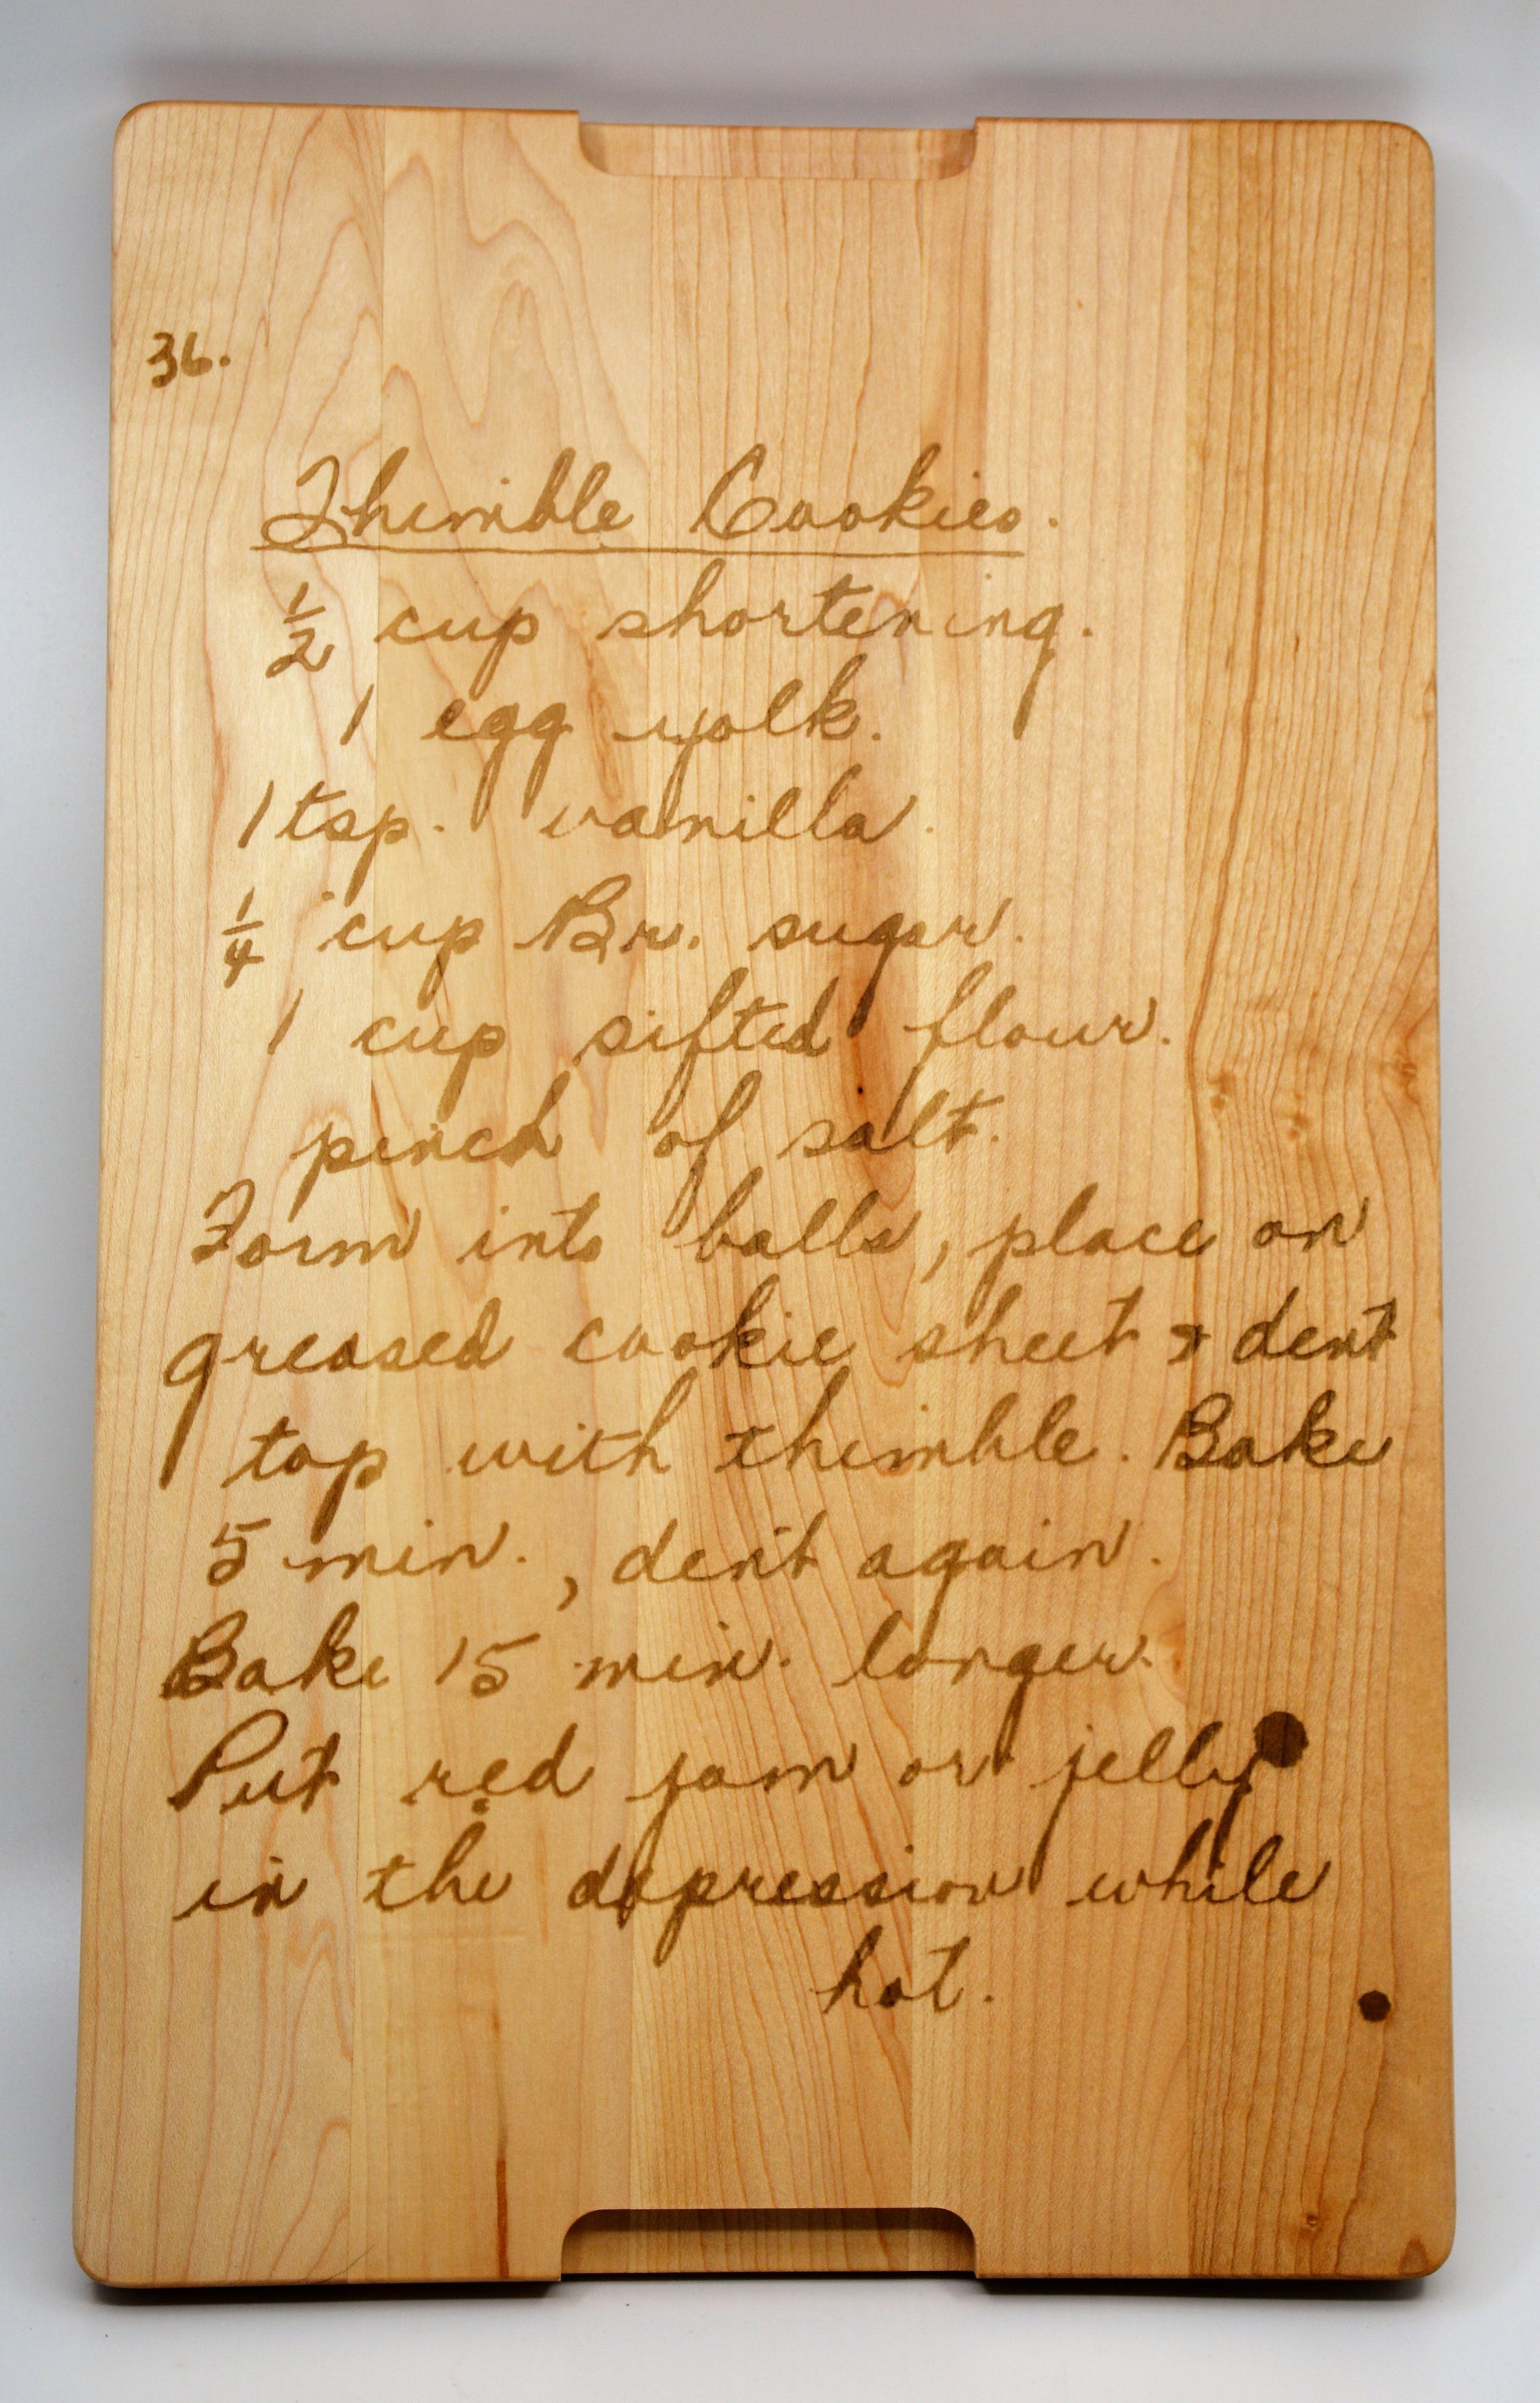 36.
Thimble Cookies.
1/2 cup shortening.
1 egg yolk.
1 tsp. vanilla.
1/4 cup Br. sugar.
1 cup sifted flour.
pinch of salt.
Form into balls, place on
greased cookie sheet & dent
top with thimble. Bake
5 min., dent again.
Bake 15 min. longer.
Put red jam or jelly
in the depression while
hot.